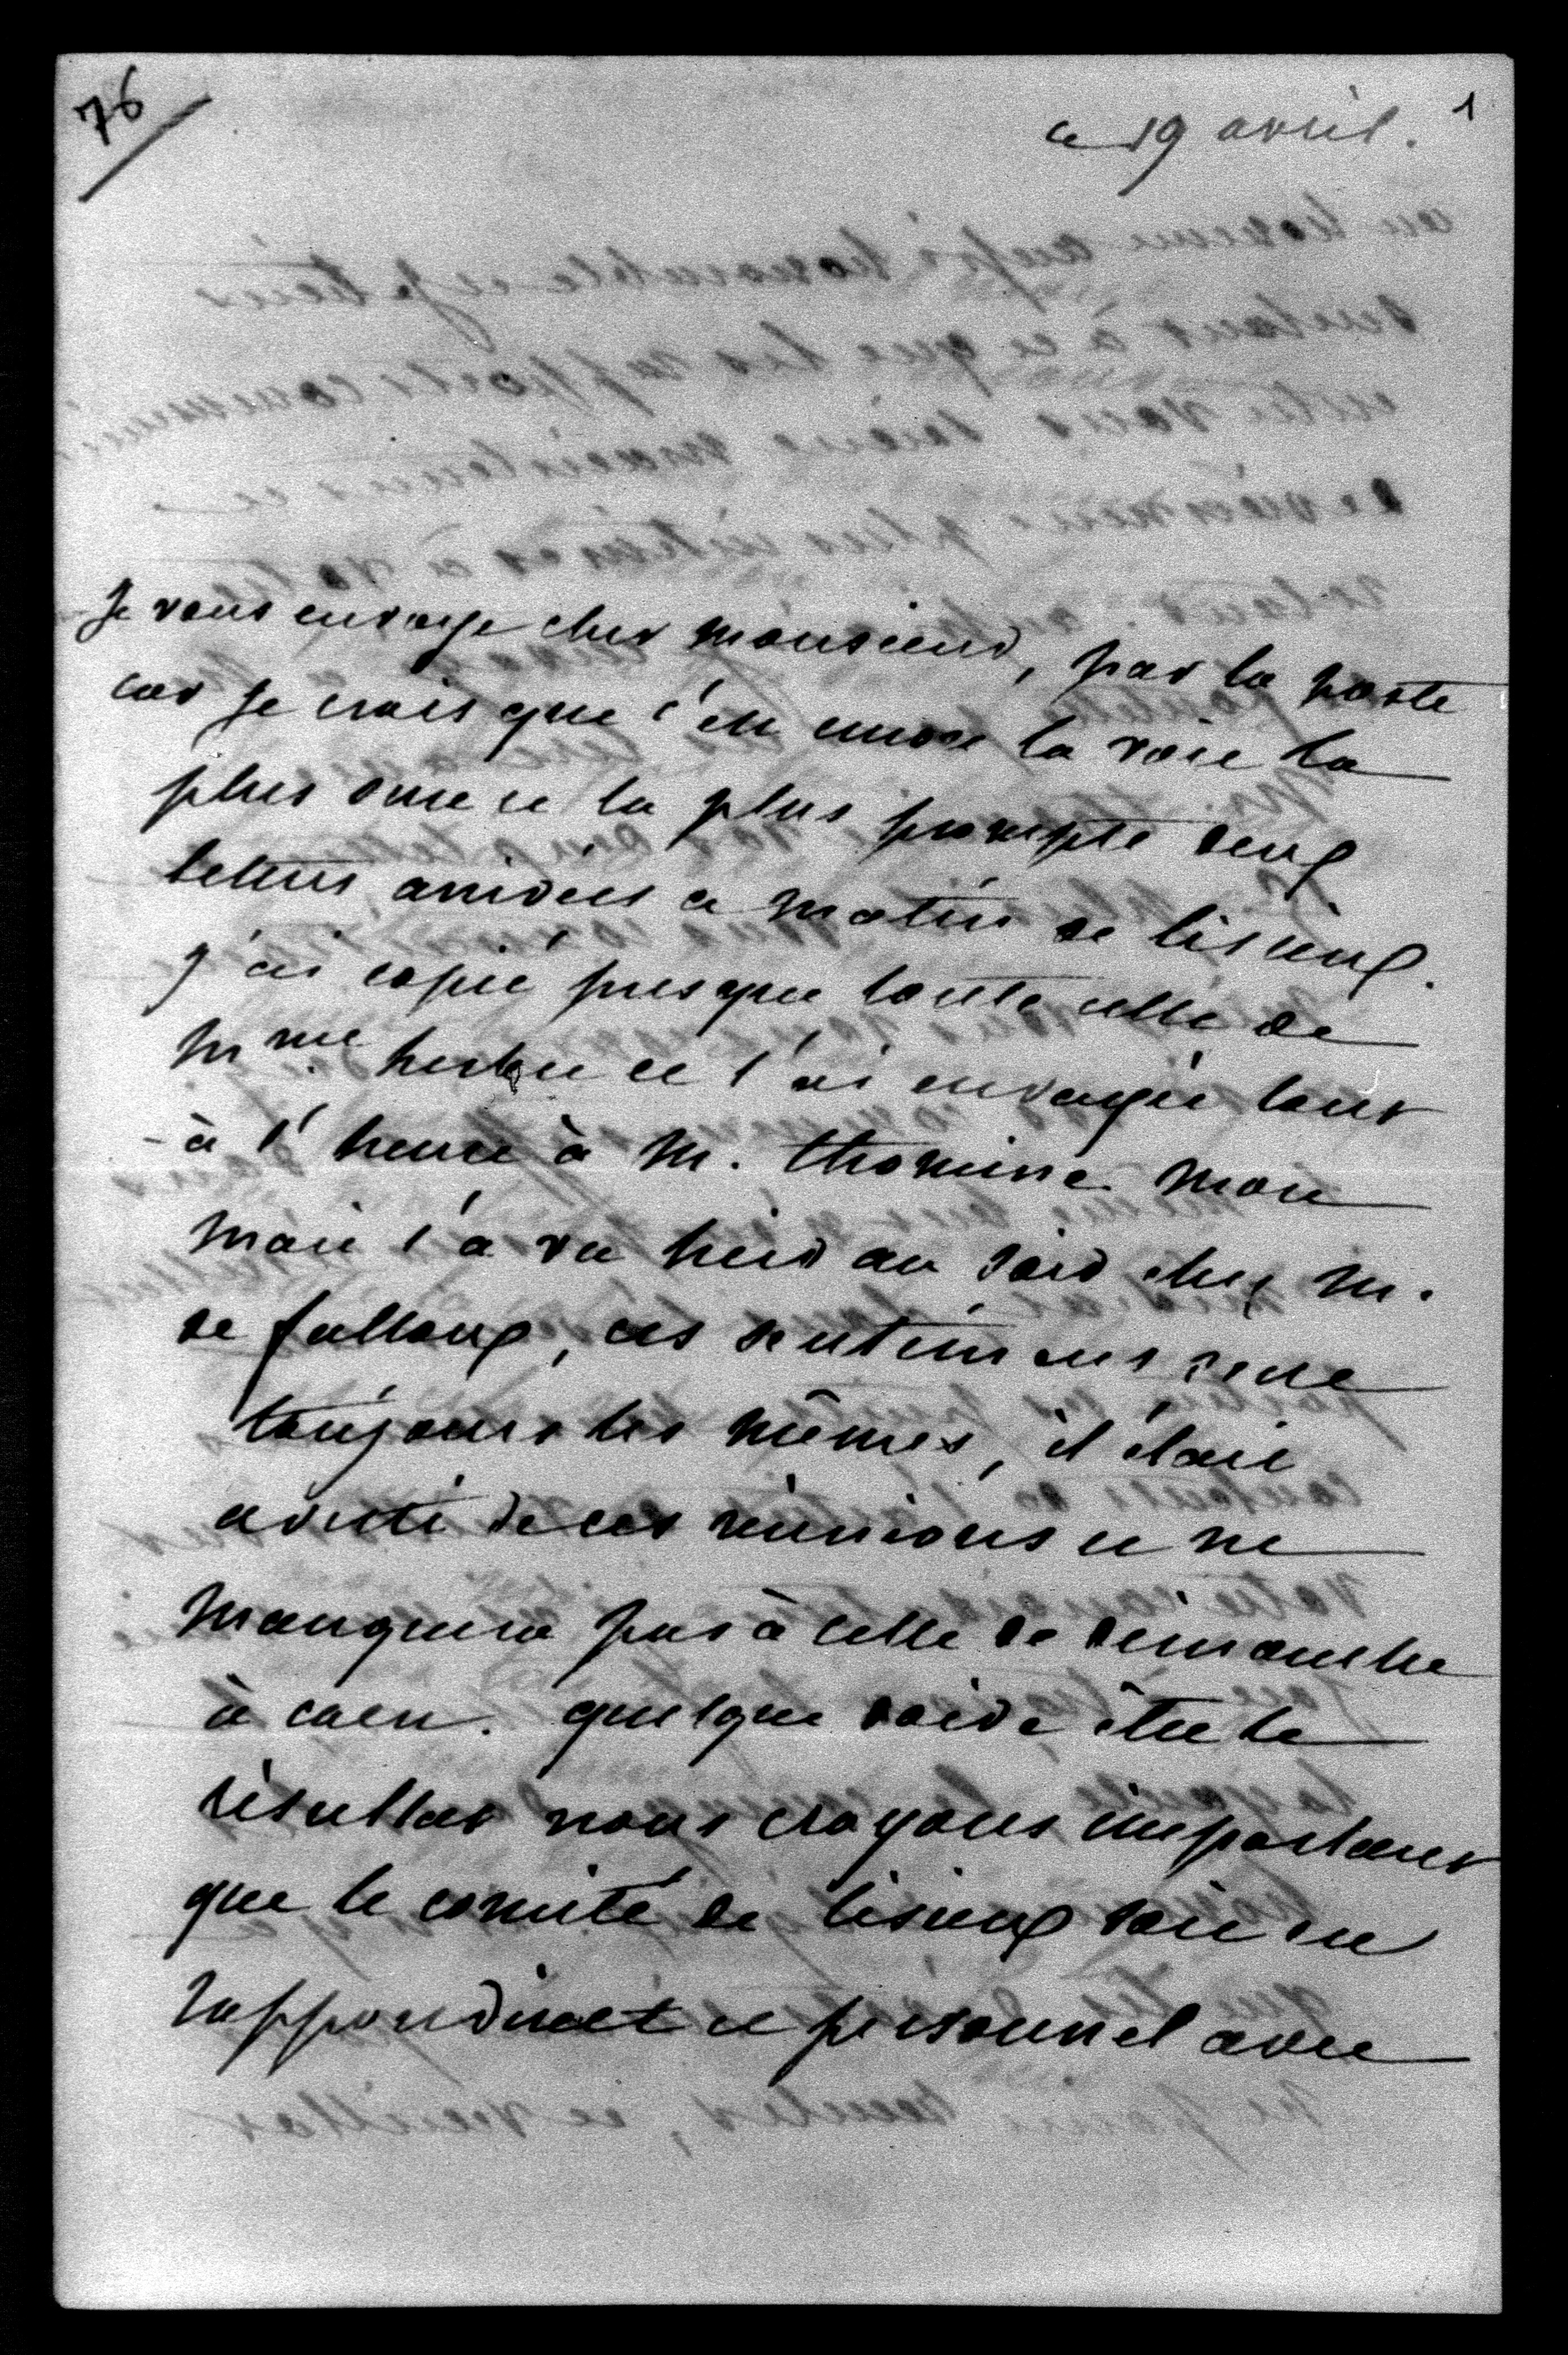 76
1
ce 19 avril.
Je vous envoye cher monsieur, par la poste
car je crois que c'en encore la voie la
plus sure et la plus prompte deux
lettres arrivées ce matin de lisieux.
j'ai copié presque toute celle de
Mme. et l'ai envoyée tout
à l'heure à M. thomine mon
mari l'a vu hier au soir chez M.
de falloux, ces sentimens sont
toujours les mêmes, il étoit
averti de ces réunions et ne
manquera pas à celle de dimanche
à caen. quelque doive être le
résultat nous croyons important
que le comité de lisieux soit en
rapport direct et personnel avec